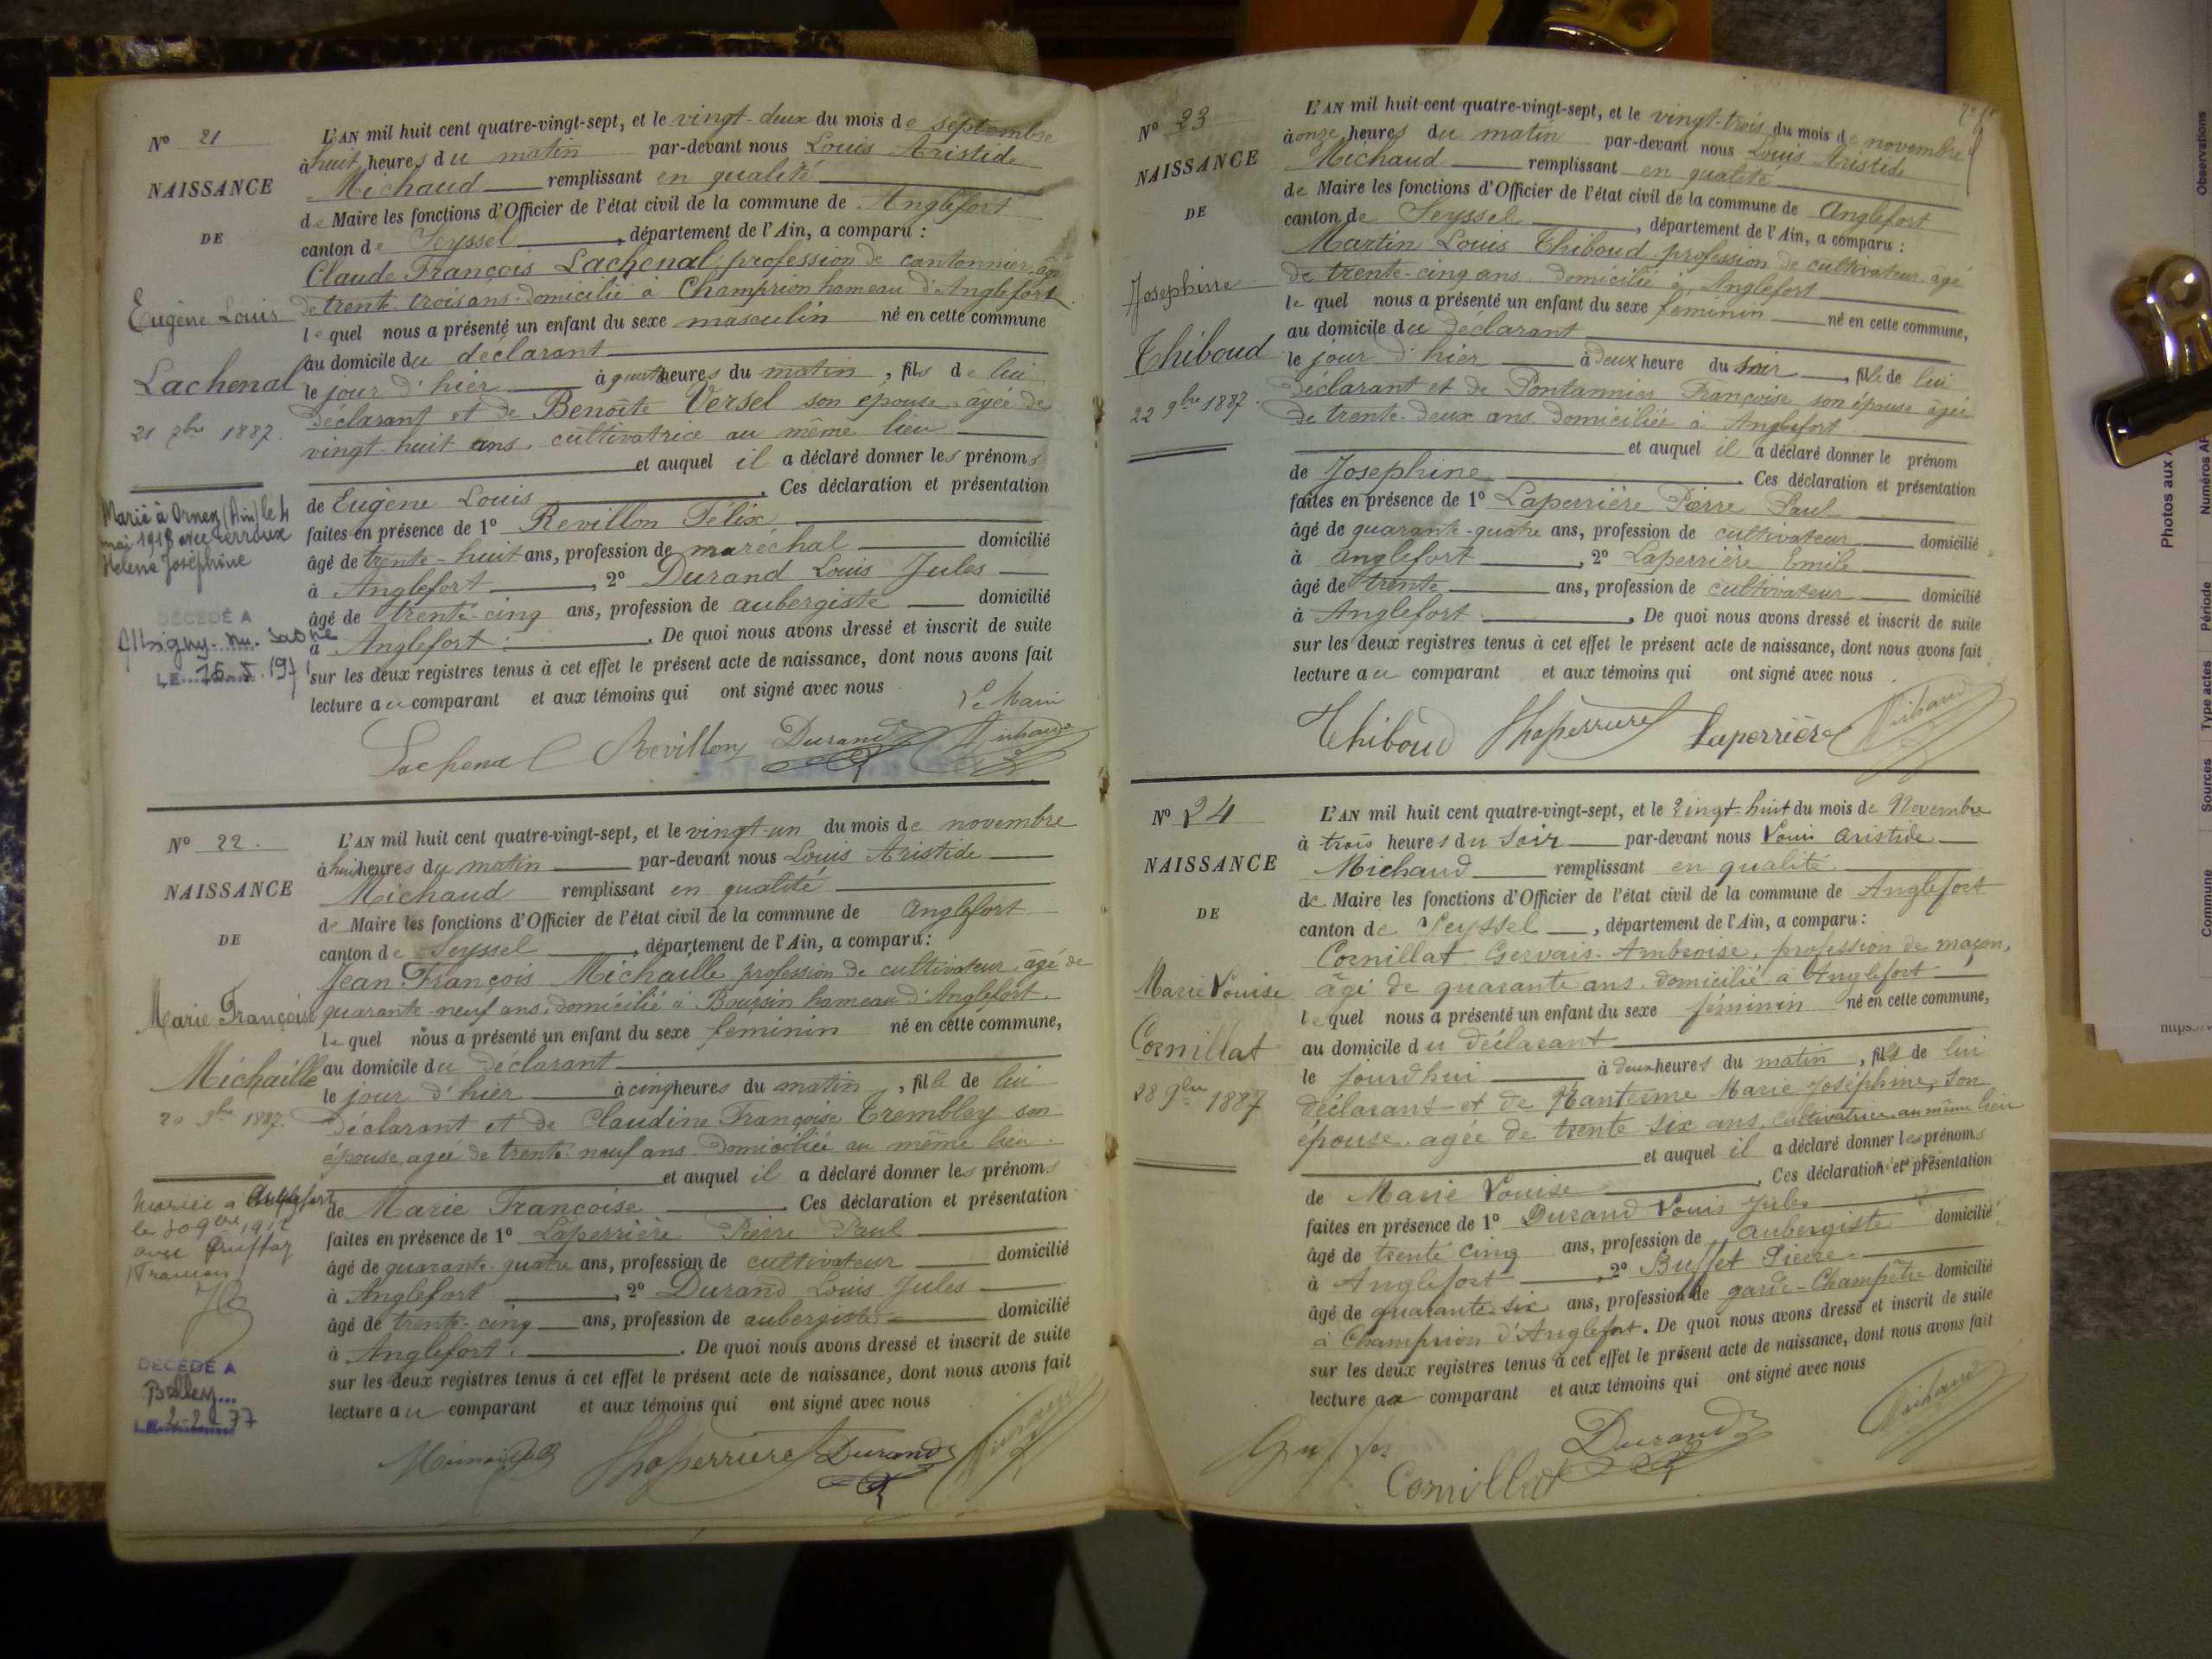 N° 21
NAISSANCE
DE
Eugène Louis
Lachenal
21 7bre 1887.
Marié à Ornex (Ain) le 4
mai 1918 avec
Hélène Joséphine
DÉCÉDÉ A
LE
L'AN mil huit cent quatre-vingt-sept, et le vingt-deux du mois de septembre
à huit heures du matin par-devant nous Louis Aristide
Michaud remplissant en qualité
de Maire les fonctions d'Officier de l'état civil de la commune de Anglefort
canton de Seyssel, département de l'Ain, a comparu :
Claude François Lachenal, profession de cantonnier, âgé
de trente-trois ans domicilié à Champrion hameau d'Anglefort
lequel nous a présenté un enfant du sexe masculin né en cette commune
au domicile du déclarant
le jour d'hier à quatre heures du matin, fils de lui
déclarant et de Benoîte Versel son épouse âgée de
vingt-huit ans, cultivatrice au même lieu
et auquel il a déclaré donner les prénoms
de Eugène Louis. Ces déclaration et présentation
faites en présence de 1° Revillon Félix
âgé de trente-huit ans, profession de maréchal domicilié
à Anglefort, 2° Durand Louis Jules
âgé de trente-cinq ans, profession de aubergiste domicilié
à Anglefort. De quoi nous avons dressé et inscrit de suite
sur les deux registres tenus à cet effet le présent acte de naissance, dont nous avons fait
lecture au comparant et aux témoins qui ont signé avec nous
Le Maire
Lachenal Revillon Durand Michaud
N° 22.
NAISSANCE
DE
Marie Françoise
Michaille
20 9bre 1887.
Mariée à Anglefort
le 30 9bre 1912
avec
DÉCÉDÉ A
Belley
LE 2-2-77
L'AN mil huit cent quatre-vingt-sept, et le vingt-un du mois de novembre
à huit heures du matin par-devant nous Louis Aristide
Michaud remplissant en qualité
de Maire les fonctions d'Officier de l'état civil de la commune de Anglefort
canton de Seyssel, département de l'Ain, a comparu :
Jean François Michaille profession de cultivateur, âgé de
quarante-neuf ans, domicilié à Boursin hameau d'Anglefort.
lequel nous a présenté un enfant du sexe feminin né en cette commune,
au domicile du déclarant
le jour d'hier à cinq heures du matin, fille de lui
déclarant et de Claudine Françoise Trembley son
épouse, agée de trente-neuf ans domiciliée au même lieu
et auquel il a déclaré donner les prénoms
de Marie Françoise. Ces déclaration et présentation
faites en présence de 1° Laperrière Pierre Paul
âgé de quarante-quatre ans, profession de cultivateur domicilié
à Anglefort, 2° Durand Louis Jules
âgé de trente-cinq ans, profession de aubergiste domicilié
à Anglefort. De quoi nous avons dressé et inscrit de suite
sur les deux registres tenus à cet effet le présent acte de naissance, dont nous avons fait
lecture au comparant et aux témoins qui ont signé avec nous
Durand
N° 23
NAISSANCE
DE
Josephine
Thiboud
22 9bre 1887.
L'AN mil huit cent quatre-vingt-sept, et le vingt-trois du mois de novembre
à onze heures du matin par-devant nous Louis Aristide
Michaud remplissant en qualité
de Maire les fonctions d'Officier de l'état civil de la commune de Anglefort
canton de Seyssel, département de l'Ain, a comparu :
Martin Louis Thiboud profession de cultivateur, âgé
de trente-cinq ans domicilié à Anglefort
lequel nous a présenté un enfant du sexe feminin né en cette commune,
au domicile du déclarant
le jour d'hier à deux heure du soir, fille de lui
déclarant et de Pontannier Françoise son épouse âgée
de trente-deux ans domiciliée à Anglefort
et auquel il a déclaré donner le prénom
de Josephine. Ces déclaration et présentation
faites en présence de 1° Laperrière Pierre Paul
âgé de quarante-quatre ans, profession de cultivateur domicilié
à Anglefort, 2° Laperrière Emile
âgé de trente ans, profession de cultivateur domicilié
à Anglefort. De quoi nous avons dressé et inscrit de suite
sur les deux registres tenus à cet effet le présent acte de naissance, dont nous avons fait
lecture au comparant et aux témoins qui ont signé avec nous.
Thiboud Laperrière Michaud
N° 24
NAISSANCE
DE
Marie Louise
Cornillat
28 9bre 1887
L'AN mil huit cent quatre-vingt-sept, et le vingt-huit du mois de Novembre
à trois heures du soir par-devant nous Louis Aristide
Michaud remplissant en qualité
de Maire les fonctions d'Officier de l'état civil de la commune de Anglefort
canton de Seyssel, département de l'Ain, a comparu :
Cornillat Gervais-Ambroise, profession de maçon,
âgé de quarante ans, domicilié à Anglefort
lequel nous a présenté un enfant du sexe féminin né en cette commune,
au domicile du déclarant
le jourdhui à deux heures du matin, fille de lui
déclarant et de Marie Joséphine, son
épouse, agée de trente six ans, cultivatrice au même lieu
et auquel il a déclaré donner les prénoms
de Marie Louise. Ces déclaration et présentation
faites en présence de 1° Durand Louis Jules
âgé de trente cinq ans, profession de aubergiste domicilié
à Anglefort, 2° Buffet Pierre
âgé de quarante-six ans, profession de garde-Champêtre domicilié
à Champrion d'Anglefort. De quoi nous avons dressé et inscrit de suite
sur les deux registres tenus à cet effet le présent acte de naissance, dont nous avons fait
lecture au comparant et aux témoins qui ont signé avec nous
Durand Michaud
Cornillat
Observations
Photos aux
Période
Type actes
Sources
Commune